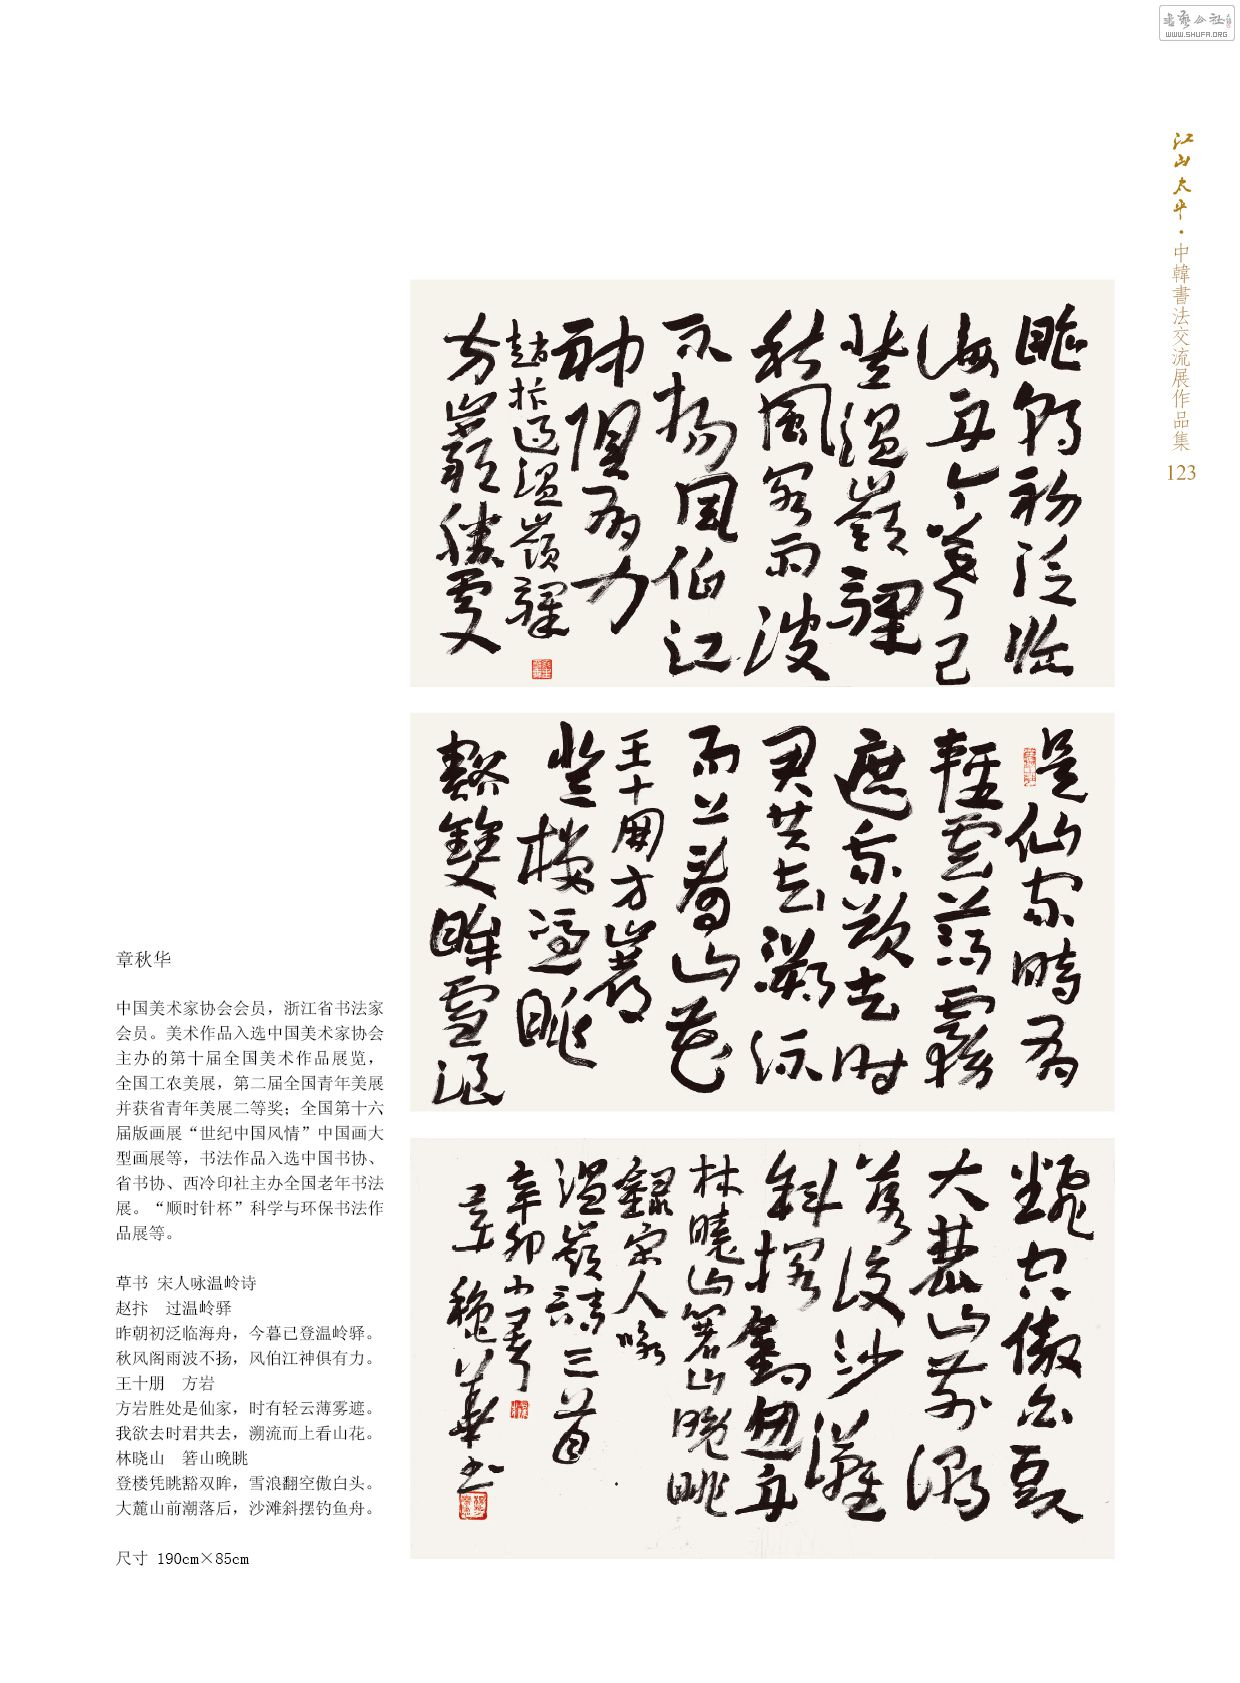 书艺公社
WWW.SHUFA.ORG
江山太平·中韓書法交流展作品集
123
昨朝初泛临
海舟今暮已
登温嶺驛
秋風阁雨波
不扬風伯江
神俱有力
趙抃过温嶺驛
方巖勝处
是仙家時有
輕雲薄霧
遮我欲去时
君共去溯流
而上看山花
王十朋方岩
登楼凭眺
豁雙眸雪浪
翻空傲白頭
大麓山前潮
落後沙灘
斜摆釣魚舟
林曉山箬山晚眺
録宋人咏
温嶺詩三首
辛卯小暑
章穐華书
章秋华
中国美术家协会会员，浙江省书法家
会员。美术作品入选中国美术家协会
主办的第十届全国美术作品展览，
全国工农美展，第二届全国青年美展
并获省青年美展二等奖；全国第十六
届版画展“世纪中国风情”中国画大
型画展等，书法作品入选中国书协、
省书协、西泠印社主办全国老年书法
展。“顺时针杯”科学与环保书法作
品展等。
草书 宋人咏温岭诗
赵抃 过温岭驿
昨朝初泛临海舟，今暮已登温岭驿。
秋风阁雨波不扬，风伯江神俱有力。
王十朋 方岩
方岩胜处是仙家，时有轻云薄雾遮。
我欲去时君共去，溯流而上看山花。
林晓山 箬山晚眺
登楼凭眺豁双眸，雪浪翻空傲白头。
大麓山前潮落后，沙滩斜摆钓鱼舟。
尺寸 190cm×85cm